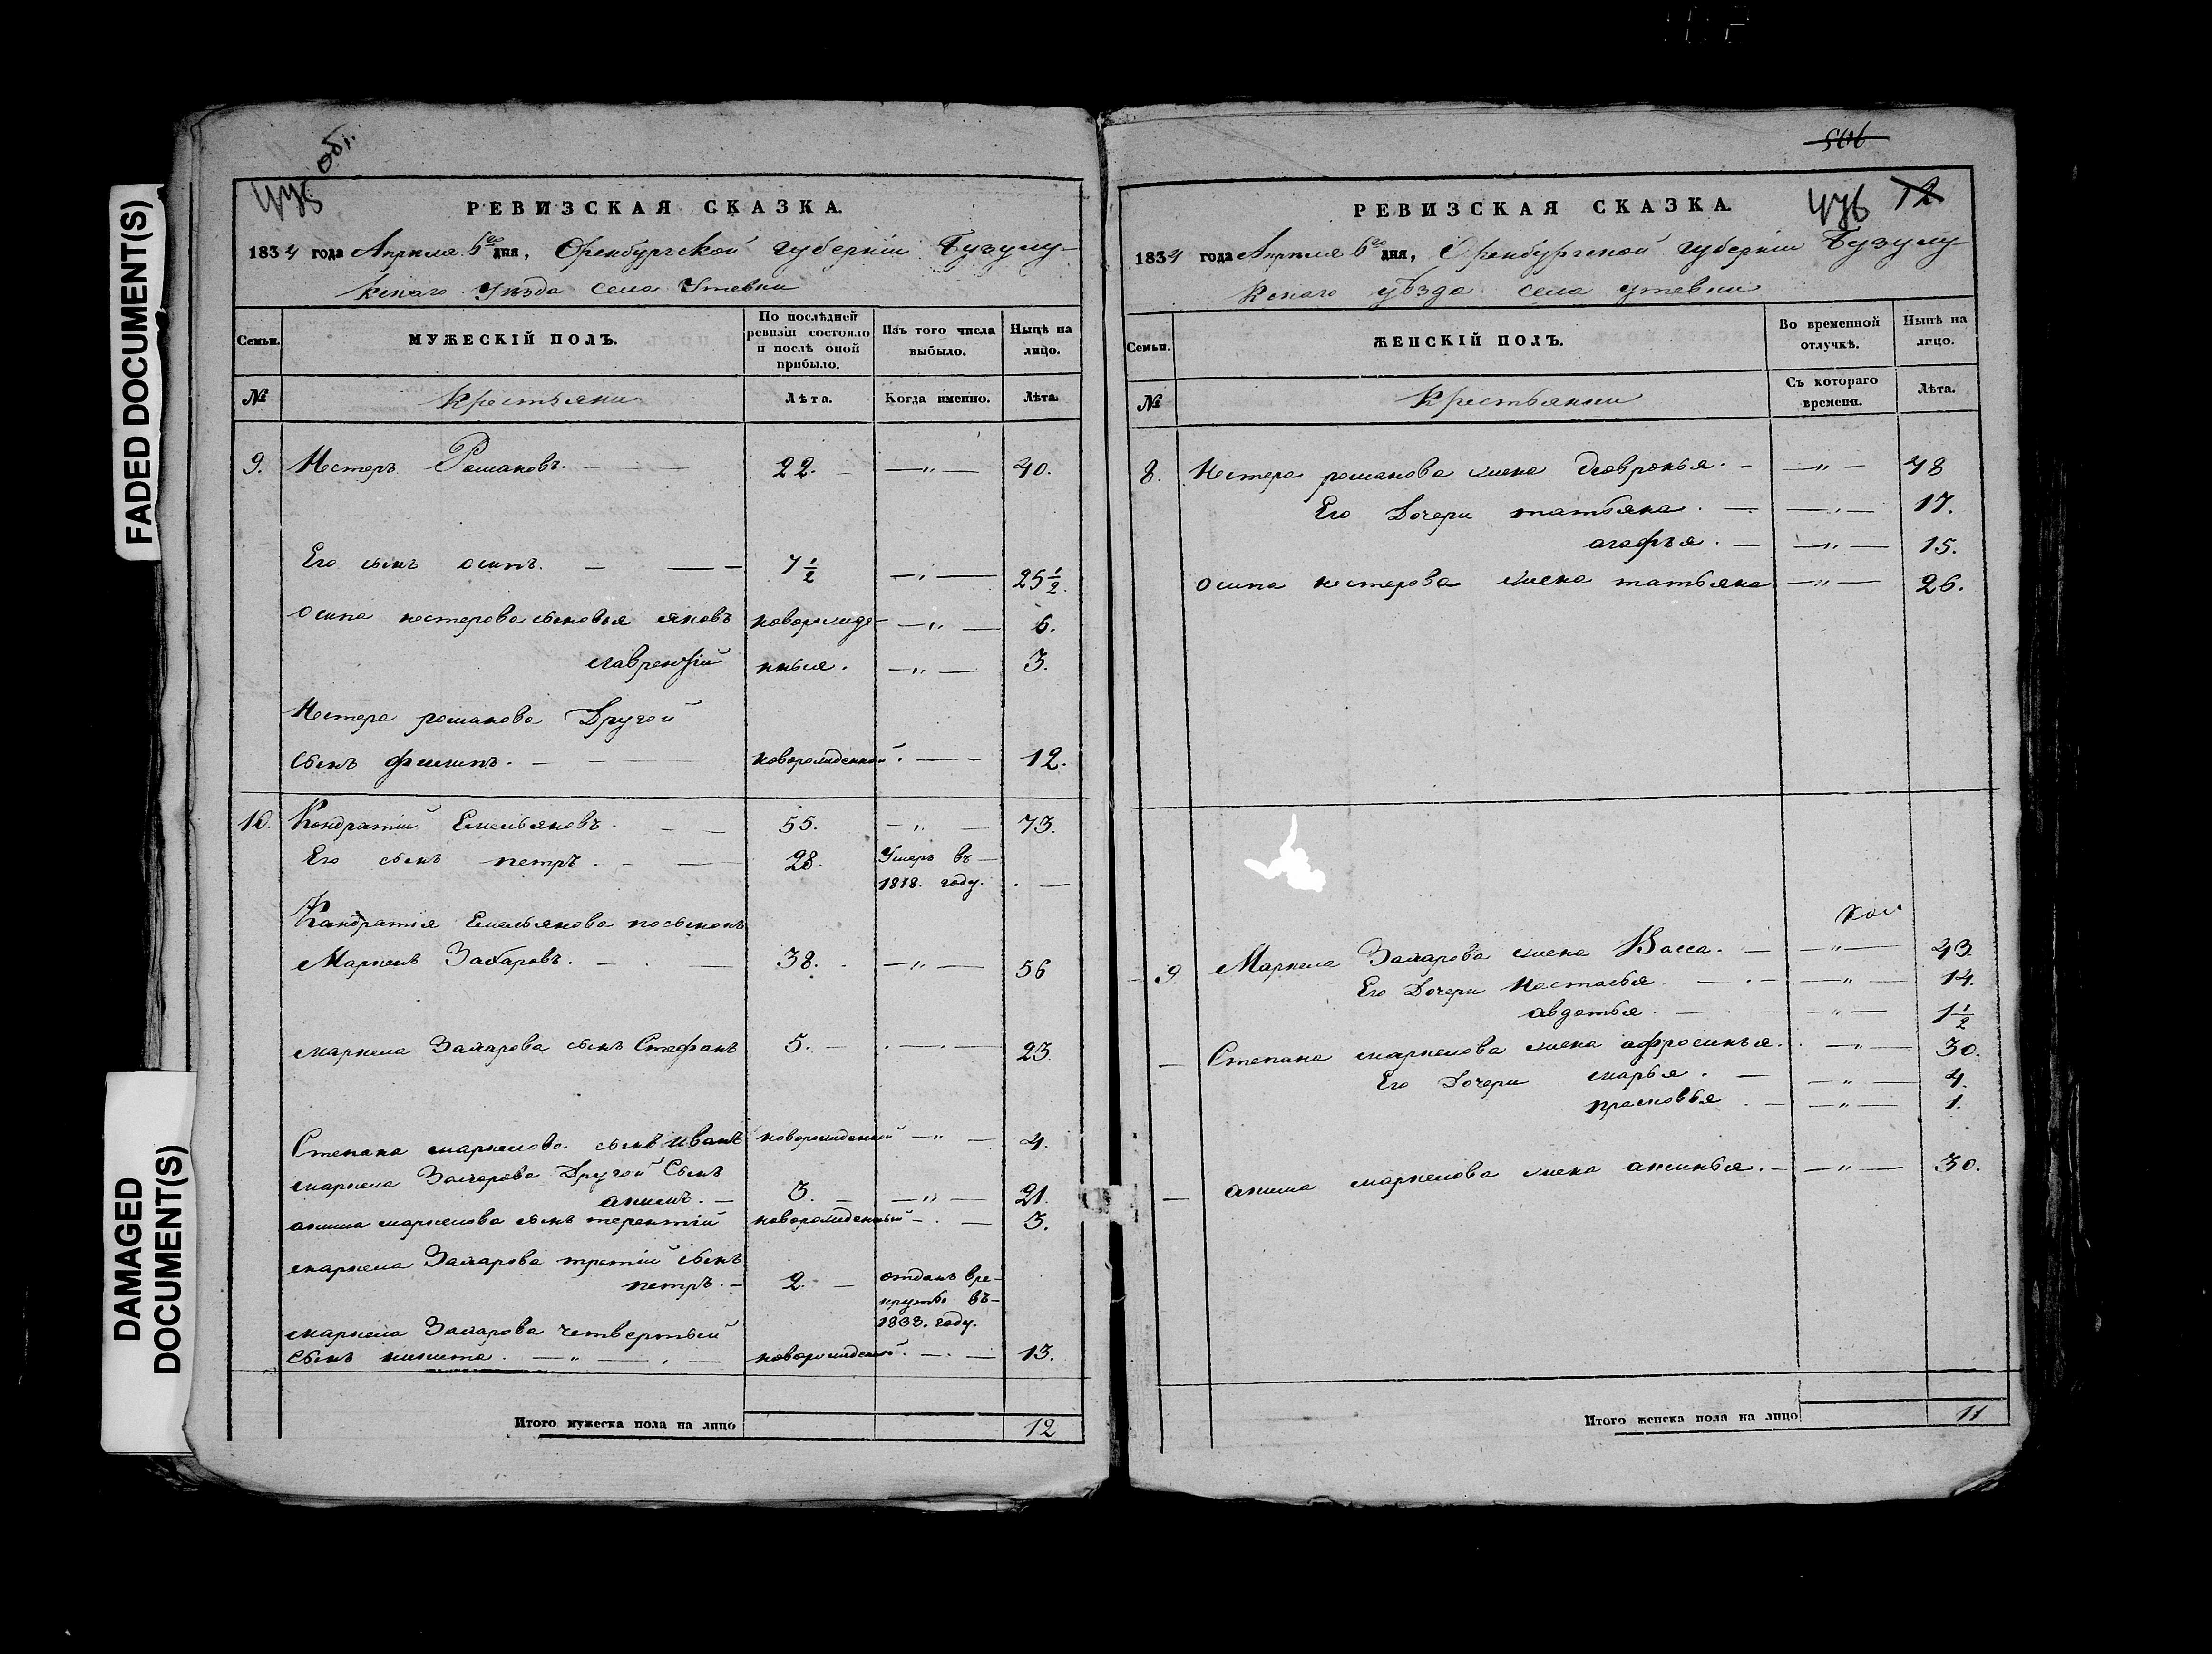 FADED DOCUMENT(S)
DAMAGED
DOCUMENT(S)
об.
РЕВИЗСКАЯ СКАЗКА.
1834 года Апреля 6го дня, Оренбургской губернiи Бузулу-
кскаго Уѣзда села Утевки
Семьи.
МУЖЕСКIЙ ПОЛЪ.
По послѣдней ревизiи состояло и послѣ оной прибыло.
Изъ того числа выбыло.
Нынѣ на лицо.
№
Крестьяни
Лѣта.
Когда именно.
Лѣта.
9. Нестеръ Романовъ. — 22. — „ — 40.
Его сынъ осипъ. — 7 1/2 — „ — 25 1/2.
осипа нестерова сыновья яковъ новорожде- — „ — 6.
лаврентiй нныя. — „ — 3.
Нестера романова Другой
сынъ филипъ. — новорожденной. — 12.
10. Кондратiй Емельяновъ. — 55. — „ — 73.
Его сынъ петръ. — 28. Умеръ въ —
1818. году. —
Кандратiя Емельянова посынокъ
Маркелъ Захаровъ. — 38. — „ — 56
маркела Захарова сынъ Стефанъ 5. — 23.
Степана маркелова сынъ иванъ новорожденной — „ — 4.
маркела Захарова Другой Сынъ
акимъ. — 3. — „ — 21.
акима маркелова сынъ терентiй новорожденный — 3.
маркела Захарова третiй сынъ
петръ. — 2. — отданъ вре-
круты въ-
1833. году.
маркела Захарова четвертый
сынъ никита. — „ — новорожденой. — 13.
Итого мужеска пола на лицо 12
506
476 12
РЕВИЗСКАЯ СКАЗКА.
1834 года Апреля 6го дня, Оренбургской губернiи Бузулу-
кскаго уѣзда села утевки
Семьи.
ЖЕНСКIЙ ПОЛЪ.
Во временной отлучкѣ.
Нынѣ на лицо.
№
Крестьянки
Съ котораго времени.
Лѣта.
8. Нестера романова жена Февронья. — „ — 48
Его Дочери татьяна. — „ — 17.
агафья. — „ — 15.
осипа нестерова жена татьяна — „ — 26.
9 Маркела Захарова жена Васса. — „ — 43.
Его Дочери Настасья. — „ — 14.
авдотья. — „ — 1 1/2
— Степана маркелова жена афросинья. — „ — 30.
Его Дочери марья. — „ — 4.
прасковья. — „ — 1.
— акима маркелова жена аксинья. — „ — 30.
Итого женска пола на лицо 11